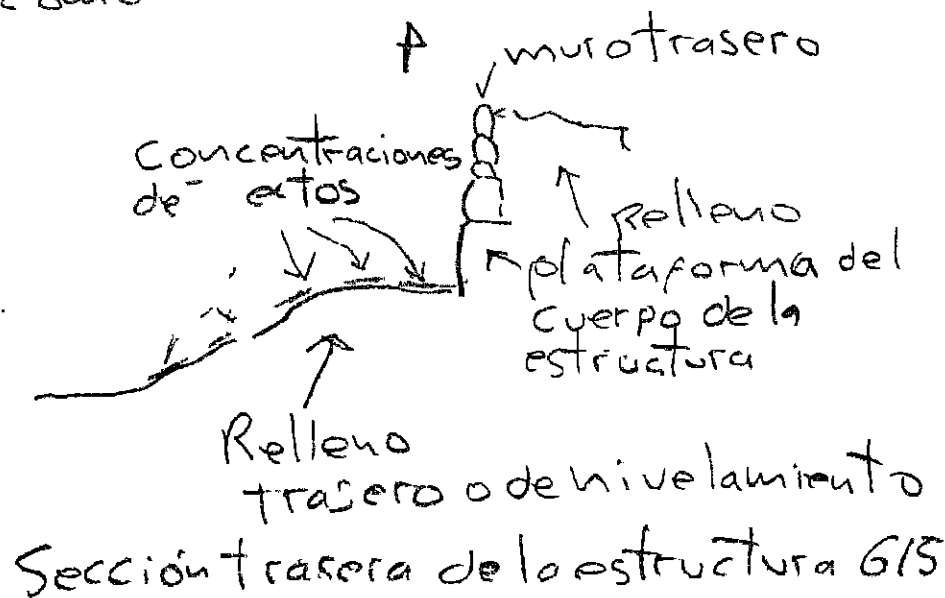 muro trasero
Concentraciones
de
Relleno
plataforma del
cuerpo de la
estructura
Relleno
trasero o de nivelamiento
Sección trasera de la estructura 615